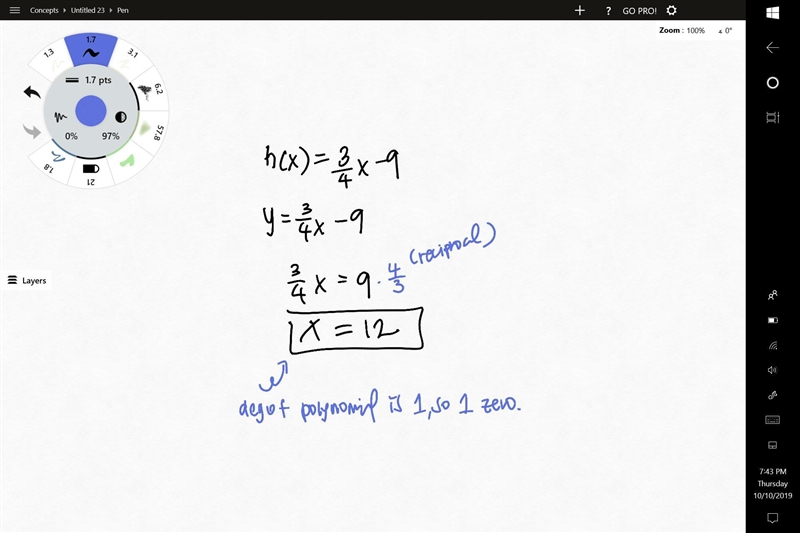 Concepts › Untitled 23 › Pen
+ ? GO PRO!
Zoom : 100% 0°
1.7
1.3
3.1
1.7 pts
6.2
0% 97%
57.8
1.8
21
Layers
h(x) = 3/4 x - 9
y = 3/4 x - 9
3/4 x = 9 · 4/3 (reciprocal)
x = 12
deg of polynomial is 1, so 1 zero.
7:43 PM
Thursday
10/10/2019